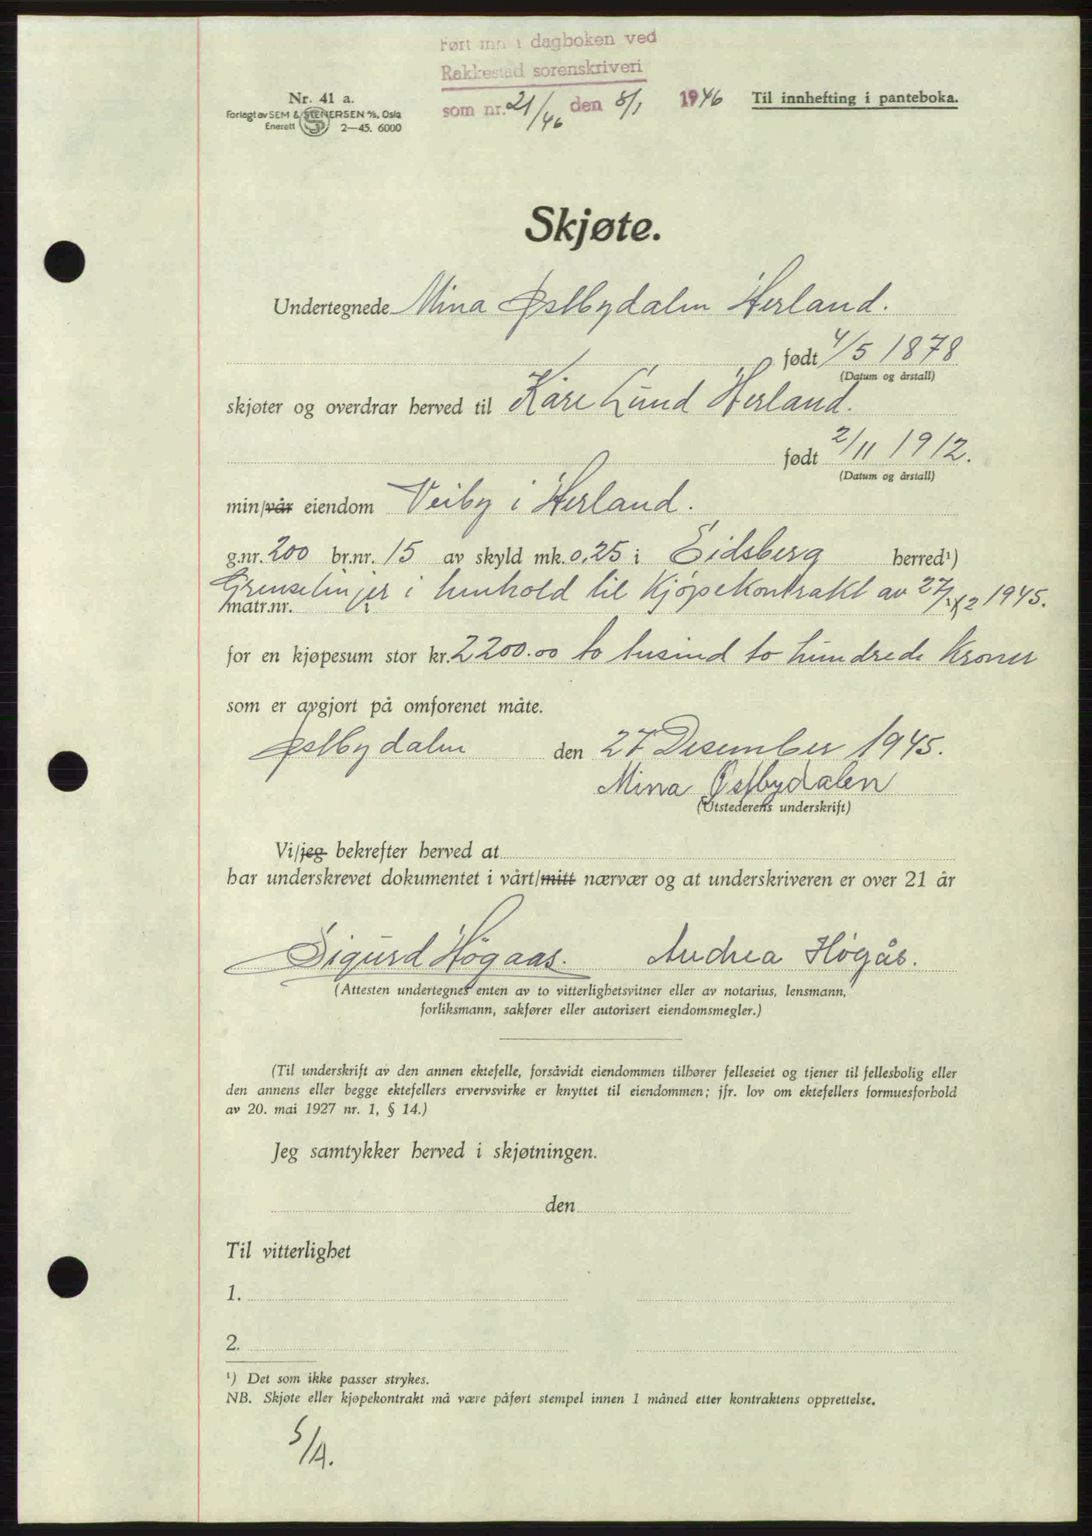 Ført inn i dagboken ved
Rakkestad sorenskriveri
som nr. 21/46 den 8/1 1946
Til innhefting i panteboka.
Nr. 41 a.
Forlagt av SEM & STENERSEN A/S, Oslo
Enerett 2—45. 6000
Skjøte.
Undertegnede Mina Østbydalen Herland.
født 4/5 1878
(Datum og årstall)
skjøter og overdrar herved til Kåre Lund Herland.
født 2/11 1912.
(Datum og årstall)
min/vår eiendom Veiby i Herland.
g.nr. 200 br.nr. 15 av skyld mk. 0,25 i Eidsberg herred¹)
Grenselinjer i henhold til Kjøpekontrakt av 27/12 1945.
matr.nr. i
for en kjøpesum stor kr. 2200.00 to tusind to hundrede Kroner
som er avgjort på omforenet måte.
Østbydalen den 27 Desember 1945.
Mina Østbydalen
(Utstederens underskrift)
Vi/jeg bekrefter herved at
har underskrevet dokumentet i vårt/mitt nærvær og at underskriveren er over 21 år
Sigurd Høgaas. Andrea Høgås.
(Attesten undertegnes enten av to vitterlighetsvitner eller av notarius, lensmann,
forliksmann, sakfører eller autorisert eiendomsmegler.)
(Til underskrift av den annen ektefelle, forsåvidt eiendommen tilhører felleseiet og tjener til fellesbolig eller
den annens eller begge ektefellers ervervsvirke er knyttet til eiendommen; jfr. lov om ektefellers formuesforhold
av 20. mai 1927 nr. 1, § 14.)
Jeg samtykker herved i skjøtningen.
den
Til vitterlighet
1.
2.
¹) Det som ikke passer strykes.
NB. Skjøte eller kjøpekontrakt må være påført stempel innen 1 måned etter kontraktens opprettelse.
S/A.